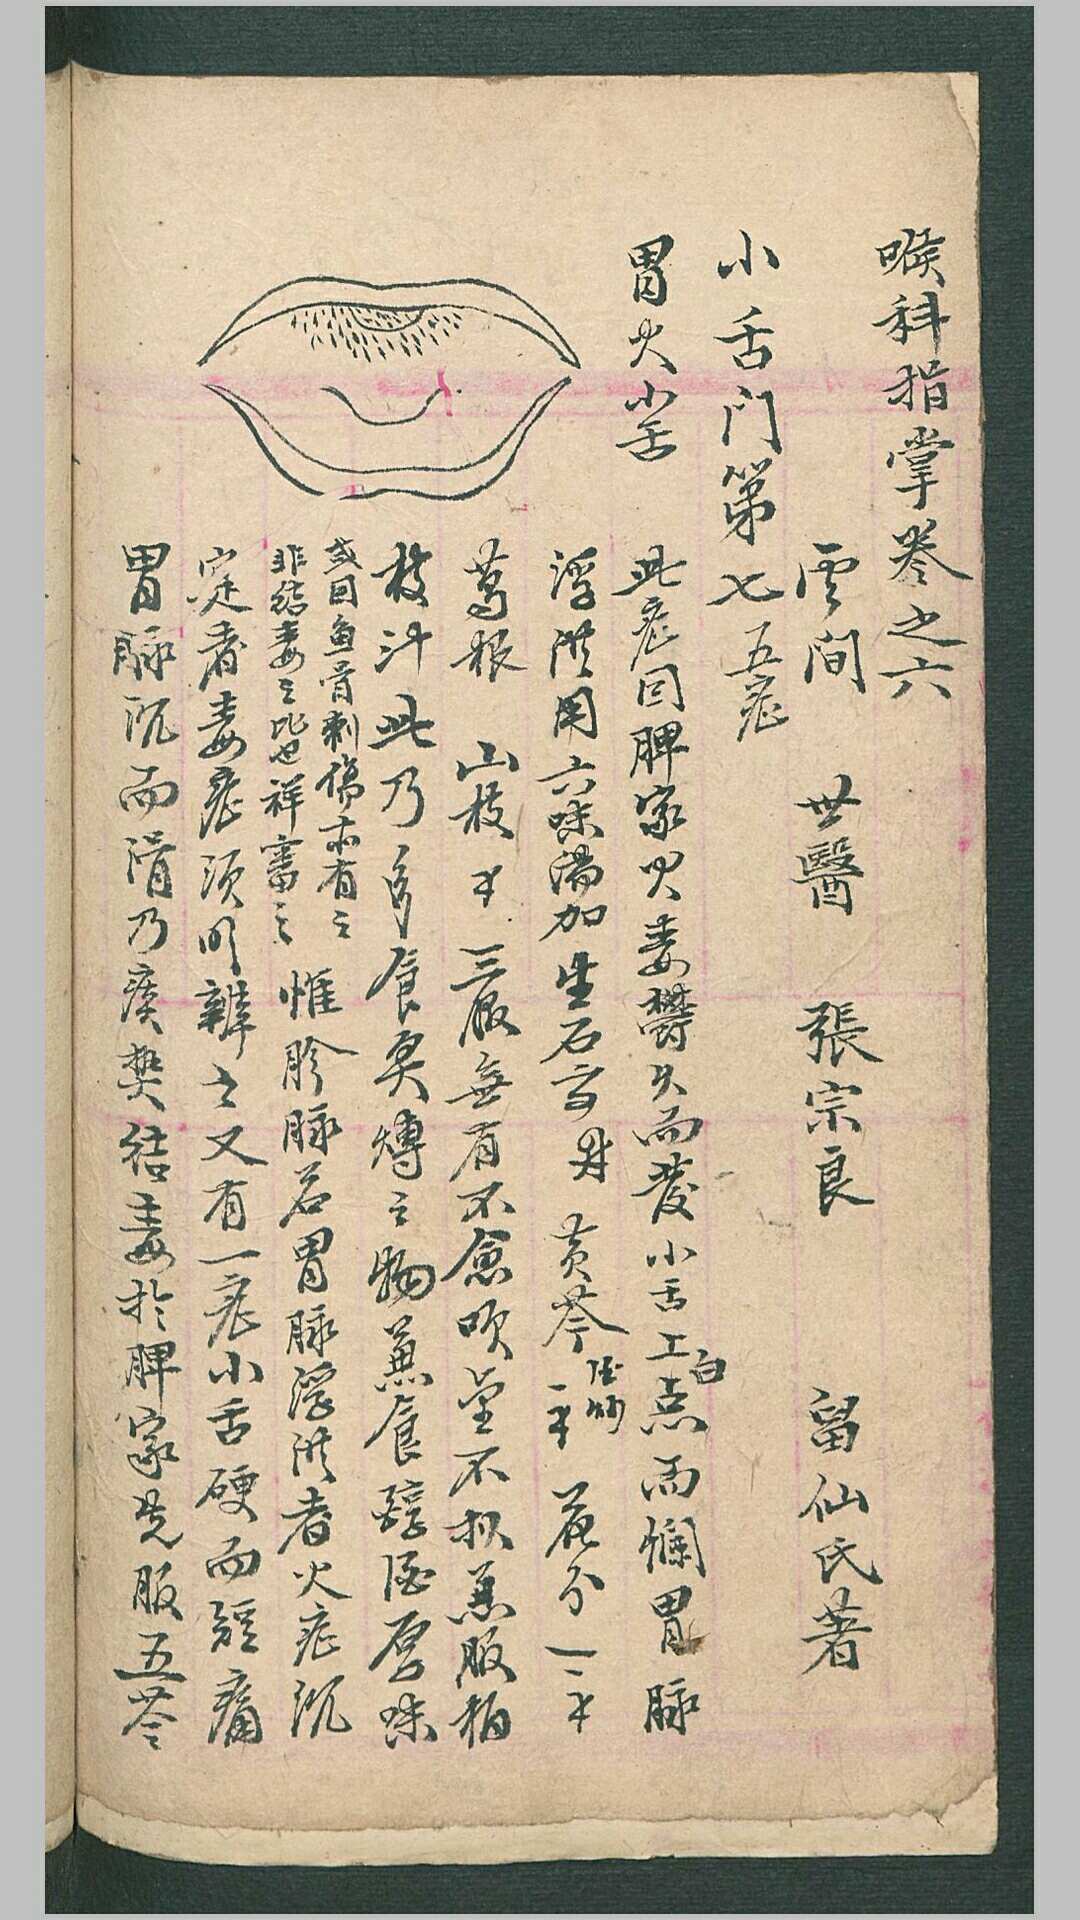 喉科指掌卷之六
雲間 世醫 張宗良 留仙氏著
小舌門第七 五症
胃火小舌
此症因脾家火毒欝久而發小舌上白点而爛胃脉
浮洪用六味湯加生石膏 黃芩酒炒 花分
葛根 山枝 三服無有不愈吹金不拟羔服栢
枝汁此乃多食炙煿之物兼食醇酒厚味
或因鱼骨刺傷亦有之
非結毒之比也祥審之
惟胗脉若胃脉浮洪者火症沉
寔者毒症須明辨之又有一症小舌硬而短痛
胃脉沉而滑乃痰樊結毒於脾家先服五苓